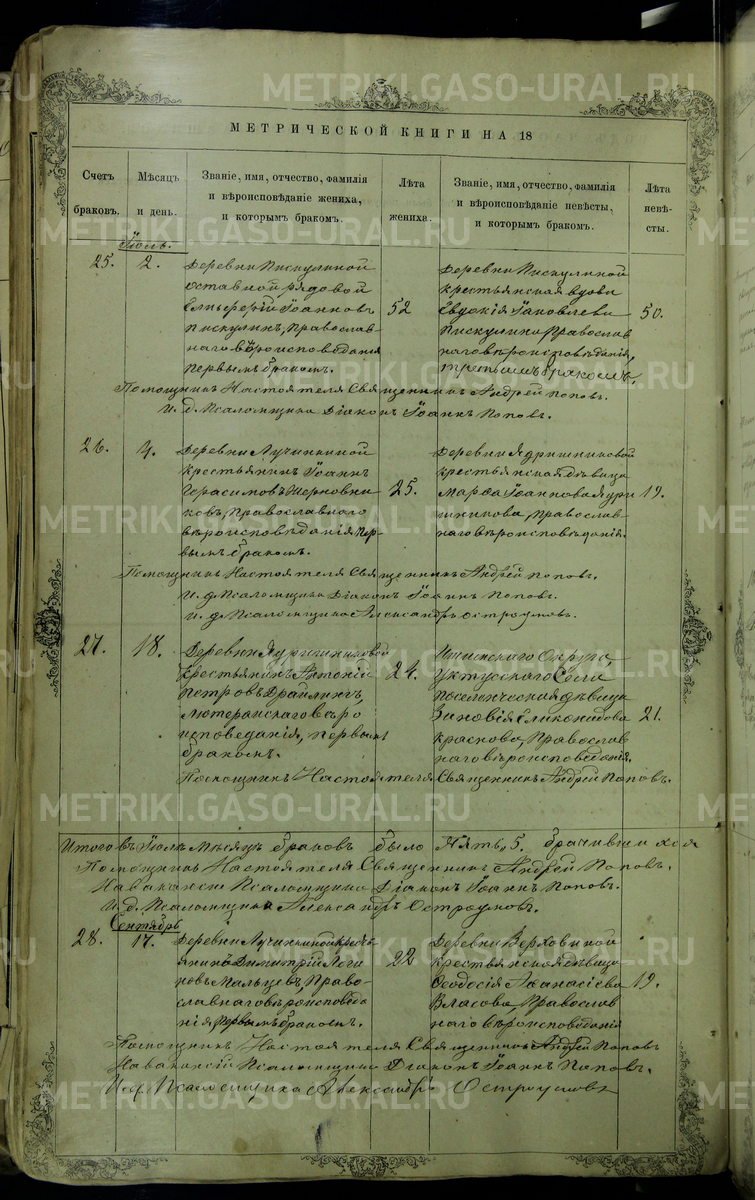 МЕТРИЧЕСКОЙ КНИГИ НА 18
Счетъ браковъ.
Мѣсяцъ и день.
Званіе, имя, отчество, фамилія и вѣроисповѣданіе жениха, и которымъ бракомъ.
Лѣта жениха.
Званіе, имя, отчество, фамилія и вѣроисповѣданіе невѣсты, и которымъ бракомъ.
Лѣта невѣ-сты.
Іюль.
25.
2.
Деревни Пискулиной
отставной рядовой
Елиѳерій Іоанновъ
Пискулинъ, Православ
наго вѣроисповѣданія
первымъ бракомъ.
52
Деревни Пискулиной
крестьянская вдова
Евдокія Іаковлева
Пискулина Православ
наго вѣроисповѣданія,
третьимъ бракомъ.
50.
Помощникъ Настоятеля Священникъ Андрей Поповъ.
И. д. Псаломщика Діаконъ Іоаннъ Поповъ.
26.
4.
Деревни Лучинкиной
крестьянинъ Іоаннъ
Герасимовъ Жерновни
ковъ, Православнаго
вѣроисповѣданія пер
вымъ бракомъ.
25.
Деревни Ядрышниковой
крестьянская дѣвица
Марѳа Іоаннова Ядры
шникова, Православ
наго вѣроисповѣданія.
19.
Помощникъ Настоятеля Священникъ Андрей Поповъ.
И. д. Псаломщика Діаконъ Іоаннъ Поповъ.
И. д. Псаломщика Александръ Остроумовъ.
27.
18.
Деревни Ядрышниковой
крестьянинъ Антоній
Петровъ Драйлингъ,
лютеранскаго вѣро
исповеданія, первымъ
бракомъ.
24.
Ишимскаго Округа,
Уктусскаго Села
поселенческая дѣвица
Зиновія Еликонидова
Краснова, Православ
наго вѣроисповѣданія.
21.
Помощникъ Настоятеля Священникъ Андрей Поповъ.
Итого въ Іюлѣ Мѣсяцѣ браковъ было Пять, 5.
Помощникъ Настоятеля Священникъ Андрей Поповъ.
На вакансіи Псаломщика Діаконъ Іоаннъ Поповъ.
И. д. Псаломщика Александръ Остроумовъ.
Сентябрь
28.
17.
Деревни Лучинкиной кресть
янинъ Димитрій Логи
новъ Мальцевъ, Право-
славнаго вѣроисповѣда
нія первымъ бракомъ.
22
Деревни Верховиной
крестьянская дѣвица
Ѳеодосія Аѳанасіева
Власова, Православ
наго вѣроисповѣданія
19.
Помощникъ Настоятеля Священникъ Андрей Поповъ
На вакансіи Псаломщика Діаконъ Іоаннъ Поповъ.
И. д. Псаломщика Александръ Остроумовъ
METRIKI.GASO-URAL.RU
METRIKI.GASO-URAL.RU
METRIKI.GASO-URAL.RU
METRIKI.GASO-URAL.RU
METRIKI.GASO-URAL.RU
METRIKI.GASO-URAL.RU
METRIKI.GASO-URAL.RU
METRIKI.GASO-URAL.RU